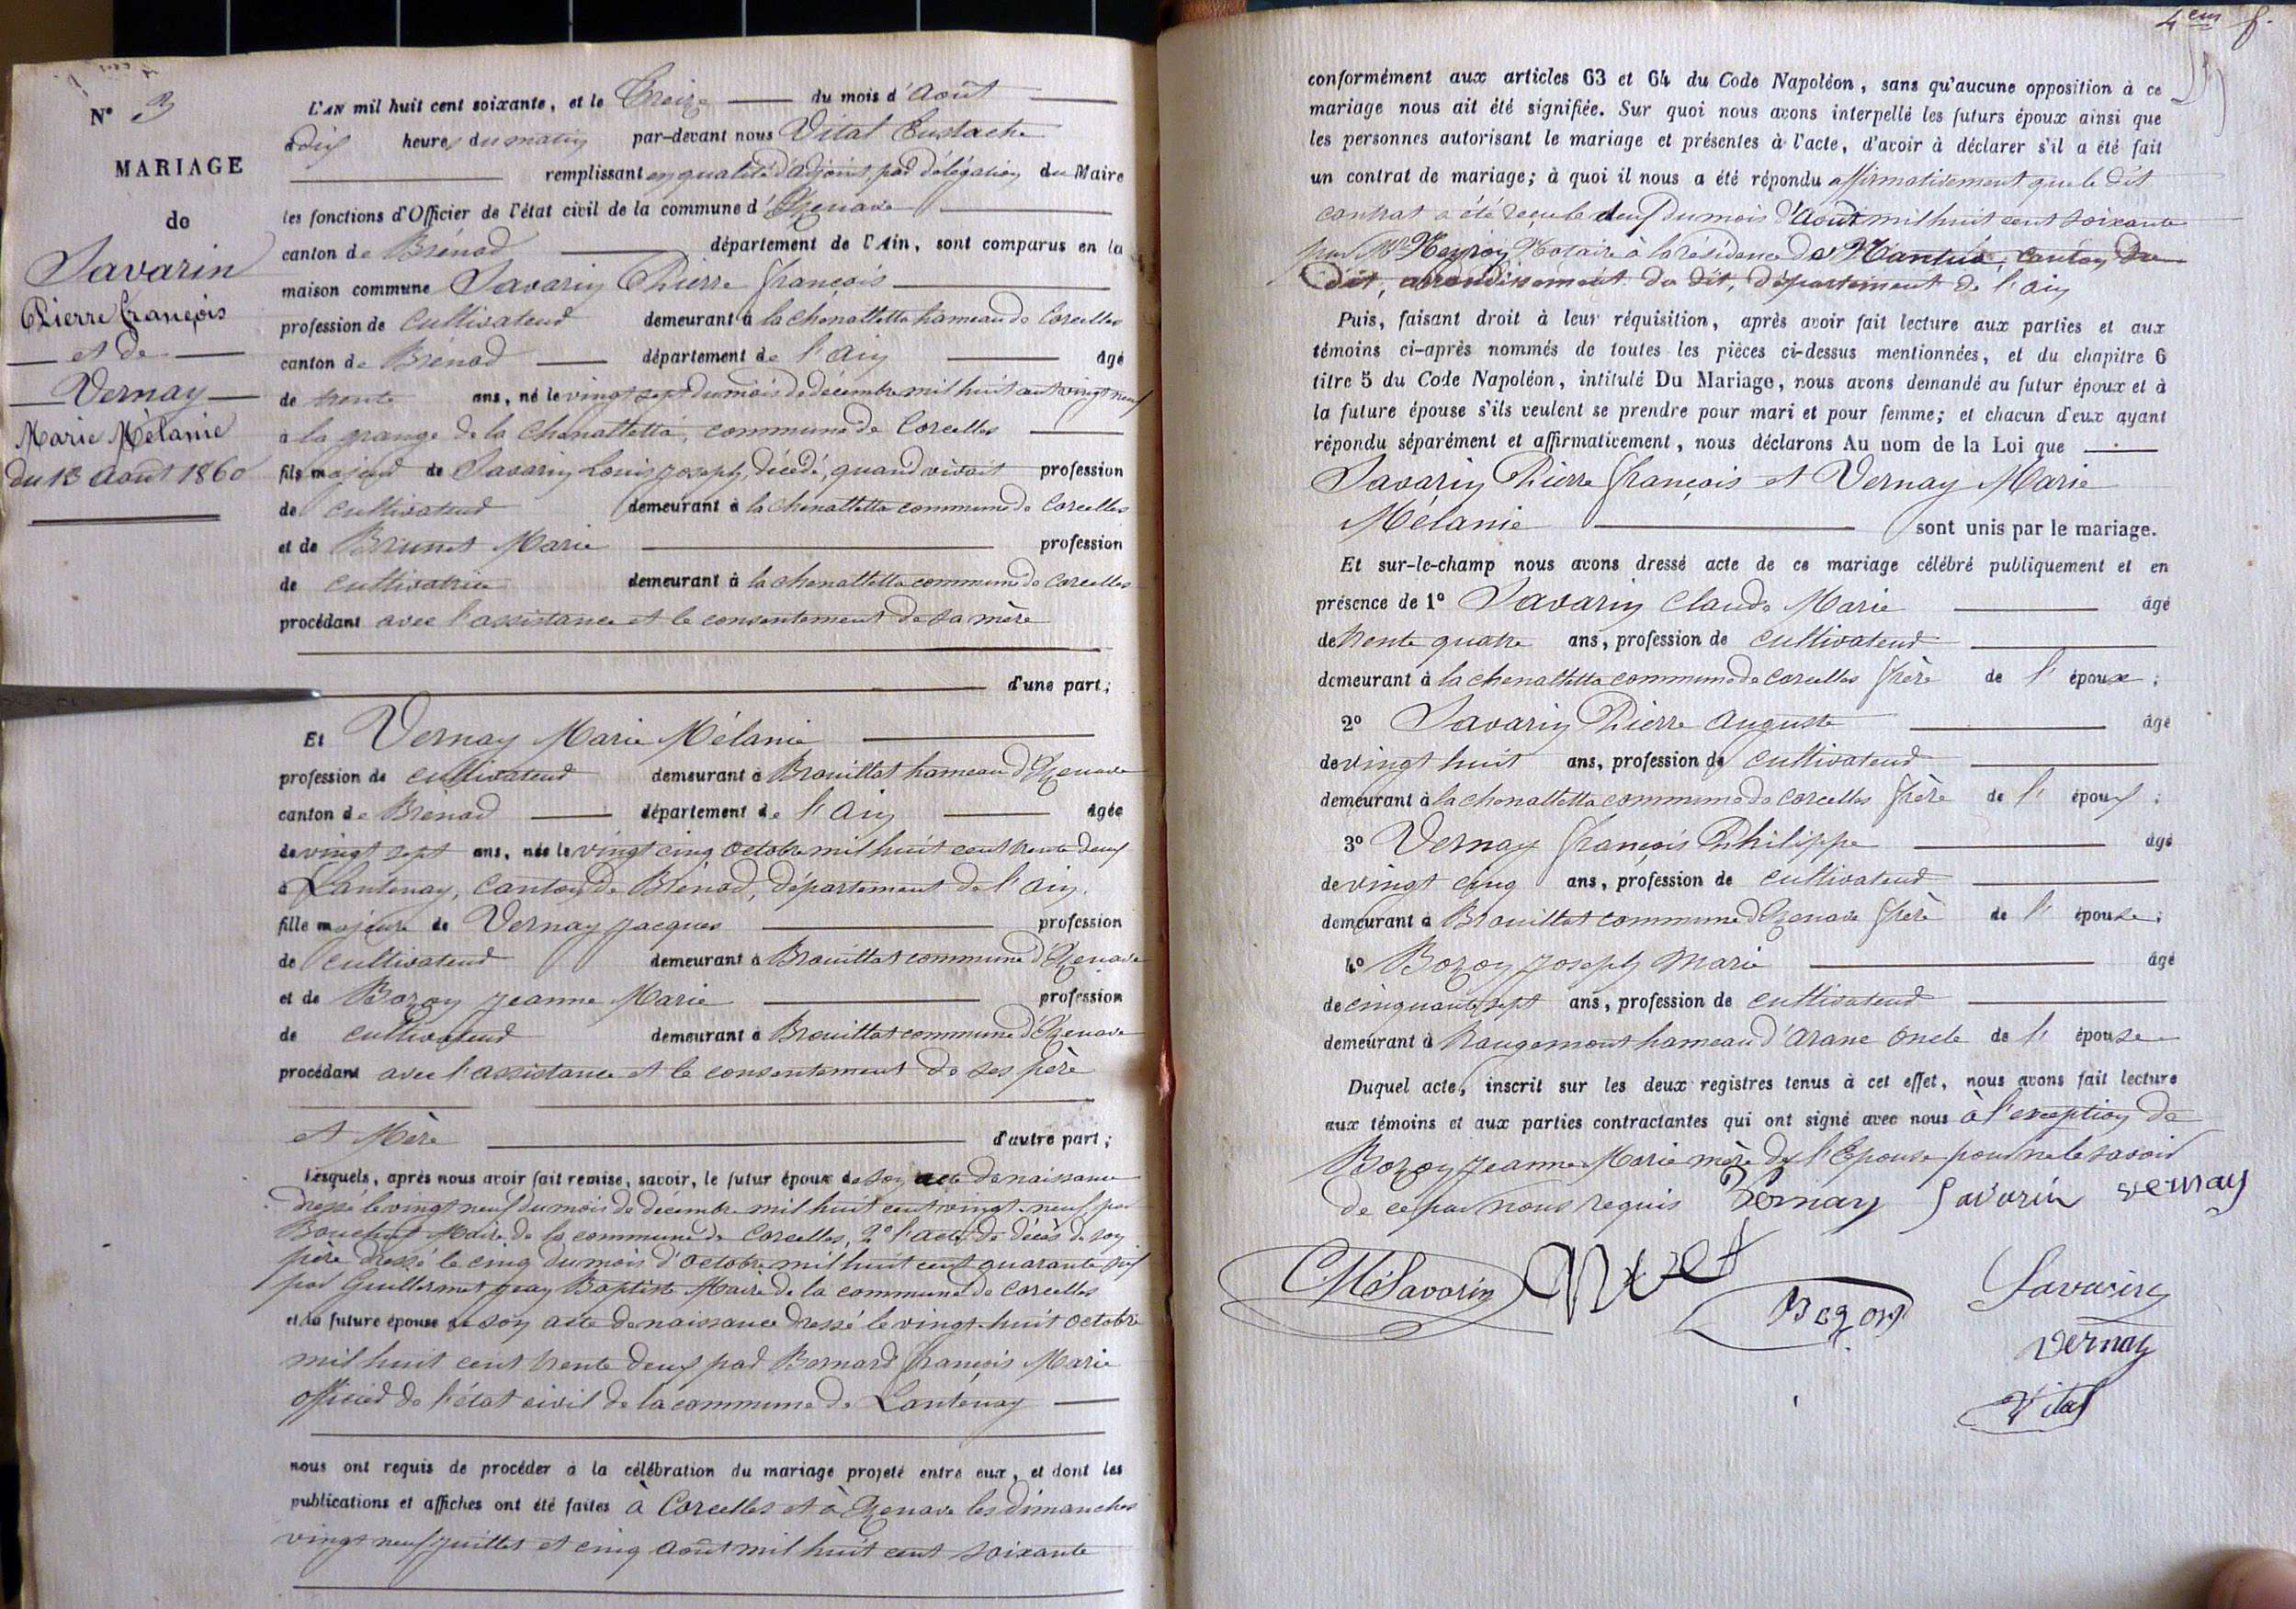 N° 3
MARIAGE
de
Savarin
Pierre François
et de
Vernay
Marie Mélanie
du 13 Août 1860
L'AN mil huit cent soixante, et le Treize du mois d'Août
à dix heures du matin par-devant nous Vital Eustache
remplissant en qualité d'adjoint, par délégation du Maire
les fonctions d'Officier de l'état civil de la commune d'Izenave
canton de Brénod département de l'Ain, sont comparus en la
maison commune Savarin Pierre François
profession de cultivateur demeurant à la chenalette hameau de Corcelles
canton de Brénod département de l'Ain âgé
de trente ans, né le vingt sept du mois de décembre mil huit cent vingt neuf
à la grange de la Chenalette, commune de Corcelles
fils majeur de Savarin Louis Joseph, décédé, quand vivait profession
de cultivateur demeurant à la chenalette commune de Corcelles
et de Brunet Marie profession
de cultivatrice demeurant à la chenalette commune de Corcelles
procédant avec l'assistance et le consentement de sa mère
d'une part;
Et Vernay Marie Mélanie
profession de cultivateur demeurant à Brouillat hameau d'Izenave
canton de Brénod département de l'Ain âgée
de vingt sept ans, née le vingt cinq octobre mil huit cent trente deux
à Lantenay, canton de Brénod, département de l'Ain.
fille majeure de Vernay Jacques profession
de cultivateur demeurant à Brouillat commune d'Izenave
et de Bozon Jeanne Marie profession
de cultivateur demeurant à Brouillat commune d'Izenave
procédant avec l'assistance et le consentement de ses père
et Mère d'autre part;
Lesquels, après nous avoir fait remise, savoir, le futur époux de son acte de naissance
dressé le vingt neuf du mois de décembre mil huit cent vingt-neuf, par
Maire de la commune de Corcelles, 2° l'acte de décès de son
père dressé le cinq du mois d'octobre mil huit cent quarante six
par Guillermet Jean Baptiste Maire de la commune de Corcelles
et la future épouse de son acte de naissance dressé le vingt-huit octobre
mil huit cent trente deux par Bernard François Marie
officier de l'état civil de la commune de Lantenay
nous ont requis de procéder à la célébration du mariage projeté entre eux, et dont les
publications et affiches ont été faites à Corcelles et à Izenave les dimanches
vingt neuf juillet et cinq août mil huit cent soixante
4em f.
conformément aux articles 63 et 64 du Code Napoléon, sans qu'aucune opposition à ce
mariage nous ait été signifiée. Sur quoi nous avons interpellé les futurs époux ainsi que
les personnes autorisant le mariage et présentes à l'acte, d'avoir à déclarer s'il a été fait
un contrat de mariage; à quoi il nous a été répondu affirmativement que le dit
contrat a été reçu le deux du mois d'Août mil huit cent soixante
par Me Notaire à la résidence de Nantua, canton du
dit, arrondissement du dit, département de l'ain
Puis, faisant droit à leur réquisition, après avoir fait lecture aux parties et aux
témoins ci-après nommés de toutes les pièces ci-dessus mentionnées, et du chapitre 6
titre 5 du Code Napoléon, intitulé Du Mariage, nous avons demandé au futur époux et à
la future épouse s'ils veulent se prendre pour mari et pour femme; et chacun d'eux ayant
répondu séparément et affirmativement, nous déclarons Au nom de la Loi que
Savarin Pierre François et Vernay Marie
Mélanie sont unis par le mariage.
Et sur-le-champ nous avons dressé acte de ce mariage célébré publiquement et en
présence de 1° Savarin Claude Marie âgé
de trente quatre ans, profession de cultivateur
demeurant à la chenalette commune de Corcelles frère de l'époux;
2° Savarin Pierre Auguste âgé
de vingt huit ans, profession de cultivateur
demeurant à la chenalette commune de Corcelles frère de l'époux;
3° Vernay François Philippe âgé
de vingt cinq ans, profession de cultivateur
demeurant à Brouillat commune d'Izenave frère de l'épouse;
4° Bozon Joseph Marie âgé
de cinquante sept ans, profession de cultivateur
demeurant à Rougemont hameau d'Aranc oncle de l'épouse
Duquel acte, inscrit sur les deux registres tenus à cet effet, nous avons fait lecture
aux témoins et aux parties contractantes qui ont signé avec nous à l'exception de
Bozon Jeanne Marie mère de l'Epouse pour ne le savoir
de ce par nous requis Vernay Savarin vernay
CM Savarin
Bozon
Savarin
vernay
Vital